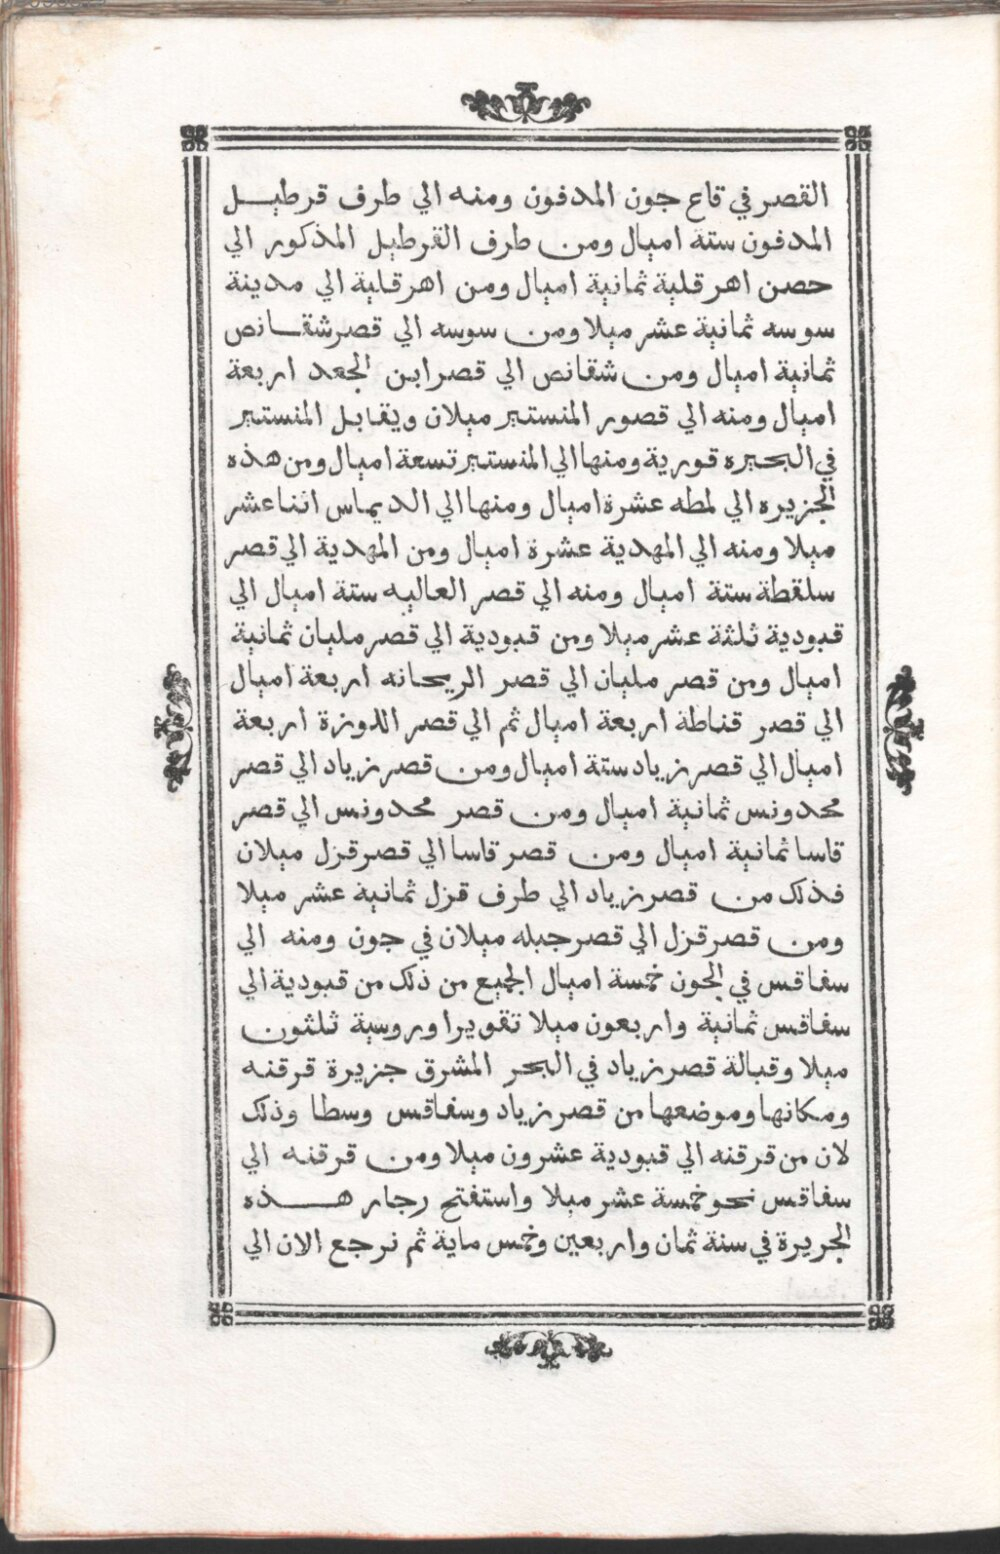 القصر في قاع جون المدفون ومنه الي طرف قرطيل
المدفون ستة اميال ومن طرف القرطيل المذكور الي
حصن اهرقلية ثمانية اميال ومن اهرقلية الي مدينة
سوسه ثمانية عشر ميلا ومن سوسه الي قصر شقانص
ثمانية اميال ومن شقانص الي قصر ابن الجعد اربعة
اميال ومنه الي قصور المنستير ميلان ويقابل المنستير
في البحيره قورية ومنها الي المنستير تسعة اميال ومن هذه
الجزيره الي لمطه عشرة اميال ومنها الي الديماس اثنا عشر
ميلا ومنه الي المهدية عشرة اميال ومن المهدية الي قصر
سلقطة ستة اميال ومنه الي قصر العاليه ستة اميال الي
قبودية ثلثة عشر ميلا ومن قبودية الي قصر مليان ثمانية
اميال ومن قصر مليان الي قصر الريحانه اربعة اميال
الي قصر قناطة اربعة اميال ثم الي قصر اللوزة اربعة
اميال الي قصر زياد ستة اميال ومن قصر زياد الي قصر
محدونس ثمانية اميال ومن قصر محدونس الي قصر
قاسا ثمانية اميال ومن قصر قاسا الي قصر قزل ميلان
فذلك من قصر زياد الي طرف قزل ثمانية عشر ميلا
ومن قصر قزل الي قصر جبله ميلان في جون ومنه الي
سفاقس في الجون خمسة اميال الجميع من ذلك من قبودية الي
سفاقس ثمانية واربعون ميلا تقويرا وروسية ثلثون
ميلا وقبالة قصر زياد في البحر المشرق جزيرة قرقنه
ومكانها وموضعها من قصر زياد وسفاقس وسطا وذلك
لان من قرقنه الي قبودية عشرون ميلا ومن قرقنه الي
سفاقس نحو خمسة عشر ميلا واستفتح رجار هذه
الجريرة في سنة ثمان واربعين وخمس ماية ثم نرجع الان الي